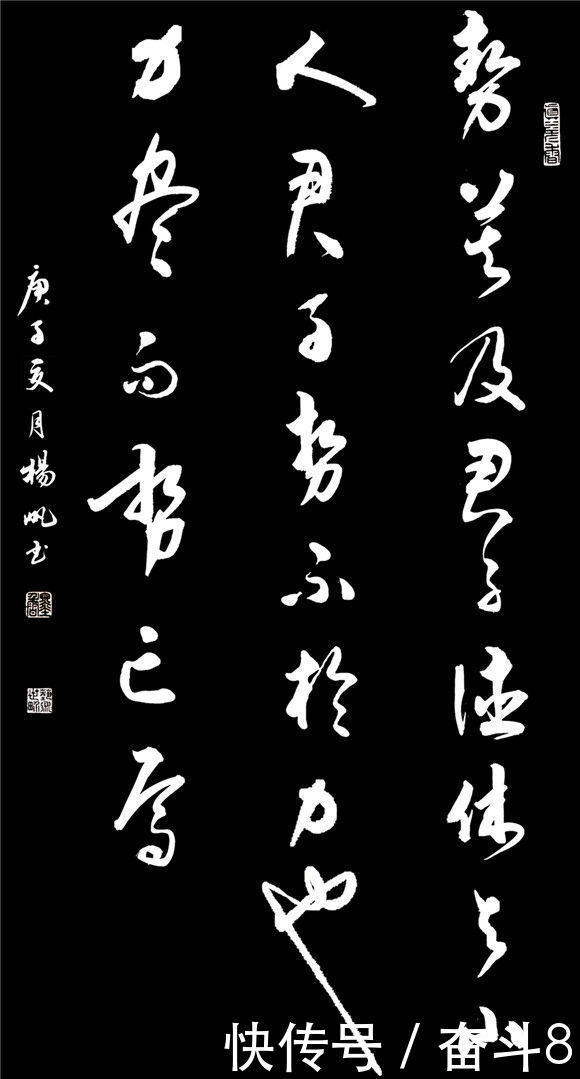 势莫及君子德休与小
人君子势不於力也
力尽而势亡焉
庚子亥月楊帆书
快传号 / 奋斗8